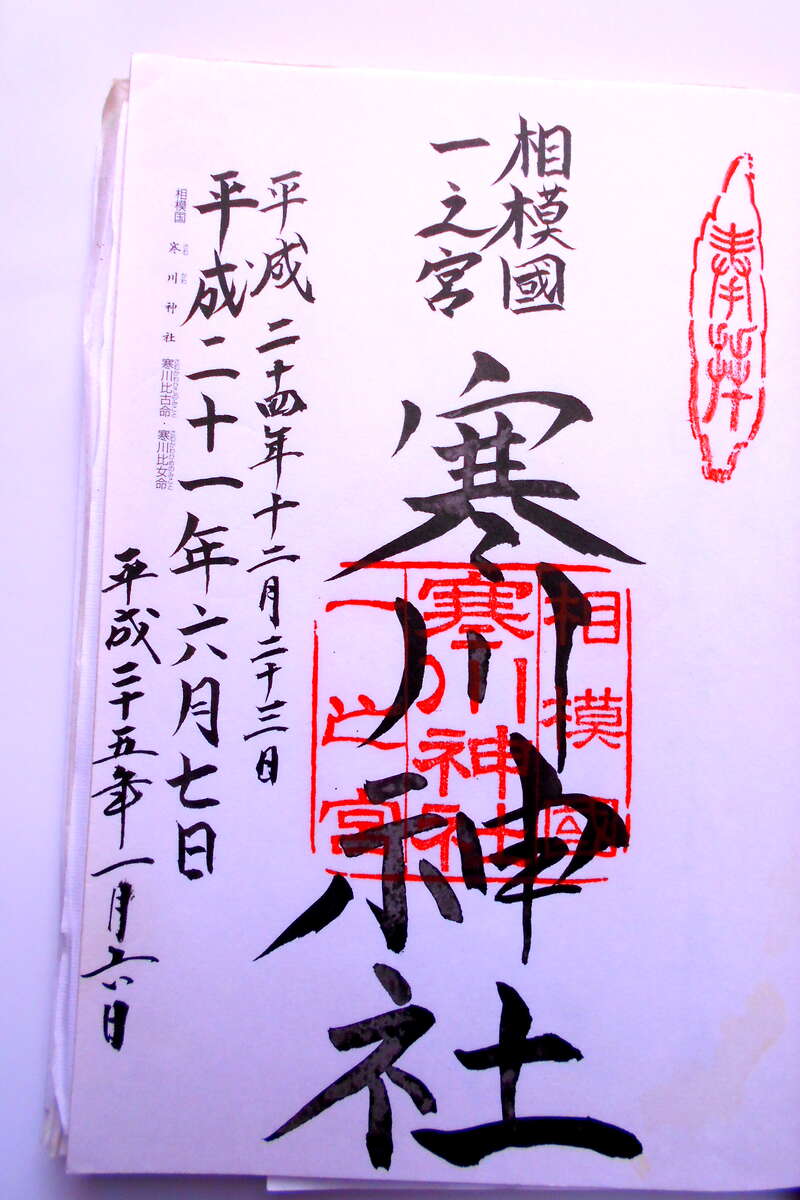 奉拝
相模國
一之宮
寒川神社
相模國
寒川神社
一之宮
平成二十四年十二月二十三日
平成二十一年六月七日
相模国 寒川神社 寒川比古命・寒川比女命
平成二十五年一月六日